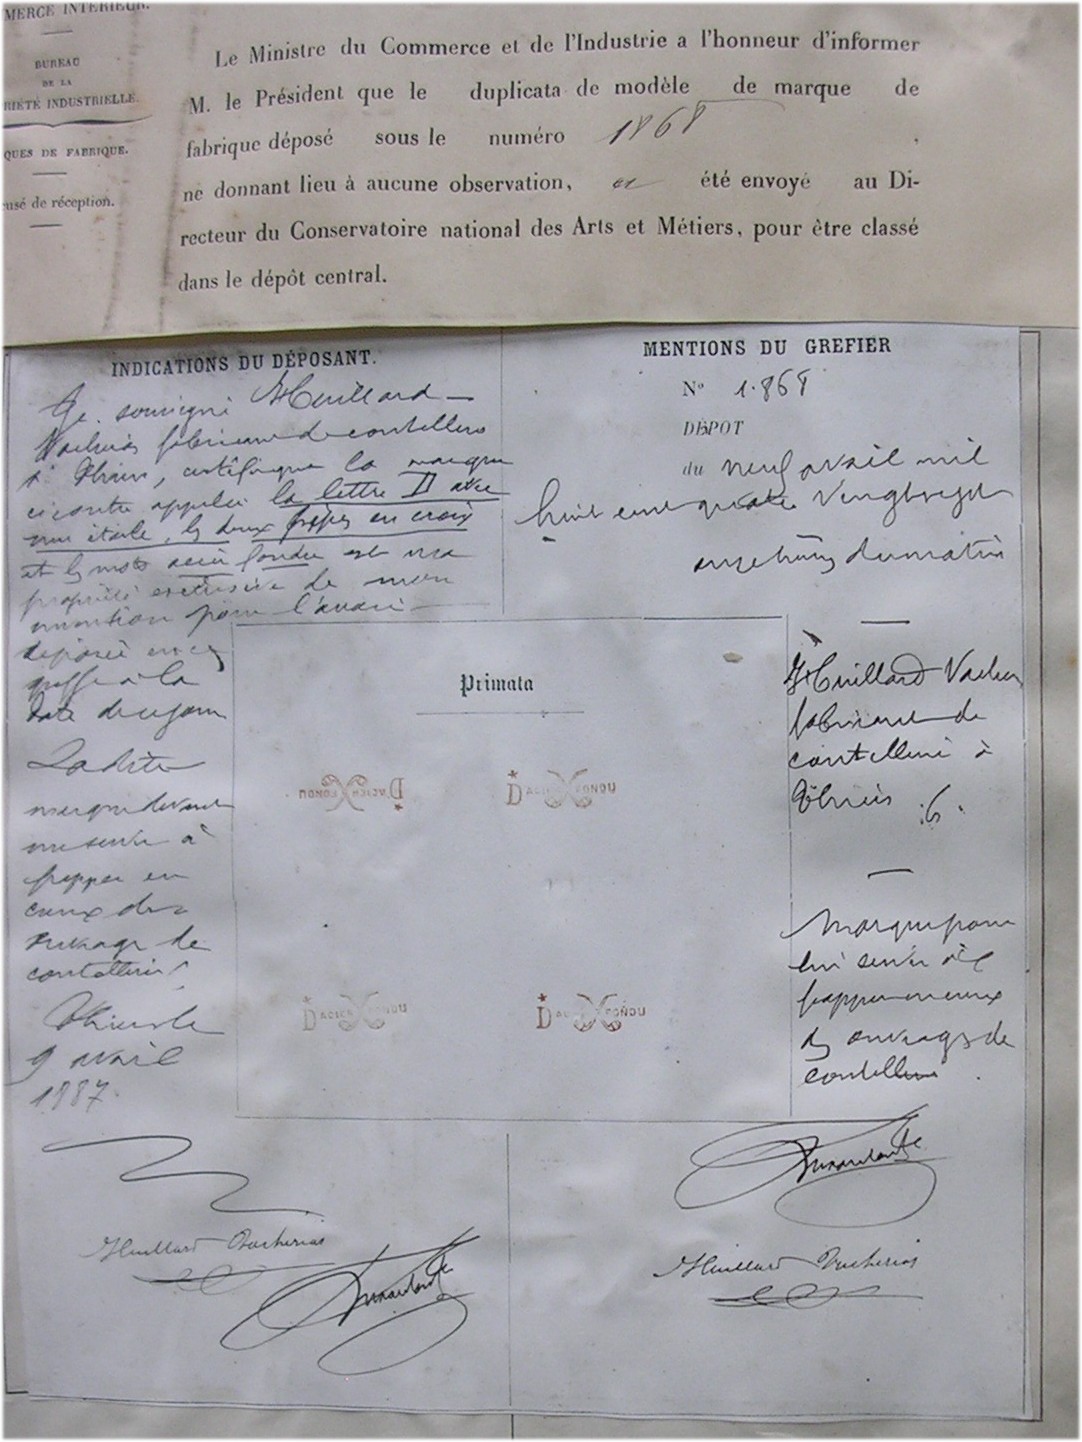 MERCE INTÉRIEUR.
BUREAU
DE LA
RIÉTÉ INDUSTRIELLE.
QUES DE FABRIQUE.
cusé de réception.
Le Ministre du Commerce et de l'Industrie a l'honneur d'informer
M. le Président que le duplicata de modèle de marque de
fabrique déposé sous le numéro 1868
ne donnant lieu à aucune observation, a été envoyé au Di-
recteur du Conservatoire national des Arts et Métiers, pour être classé
dans le dépôt central.
INDICATIONS DU DÉPOSANT.
Je soussigné Huillard
Vacherias fabricant de coutellerie
à Thiers, certifie que la marque
ci contre appelée la lettre D avec
une étoile, les deux en croix
et les mots acier fondu est ma
propriété exclusive de mon
invention pour l'avoir
déposée en ce
greffe à la
date de ce jour
La dite
marque devant
me servir à
frapper en
creux des
ouvrage de
coutellerie
Thiers le
9 avril
1887.
MENTIONS DU GREFIER
N° 1.868
DÉPOT
du neuf avril mil
huit cent quatre vingt sept
onze heures du matin
Huillard Vacherias
fabricant de
coutellerie à
Thiers
Marque pour
lui servir à
frapper en creux
des ouvrages de
coutellerie
Primata
D ACIER FONDU
D ACIER FONDU
D ACIER FONDU
D ACIER FONDU
Huillard Vacherias
Huillard Vacherias